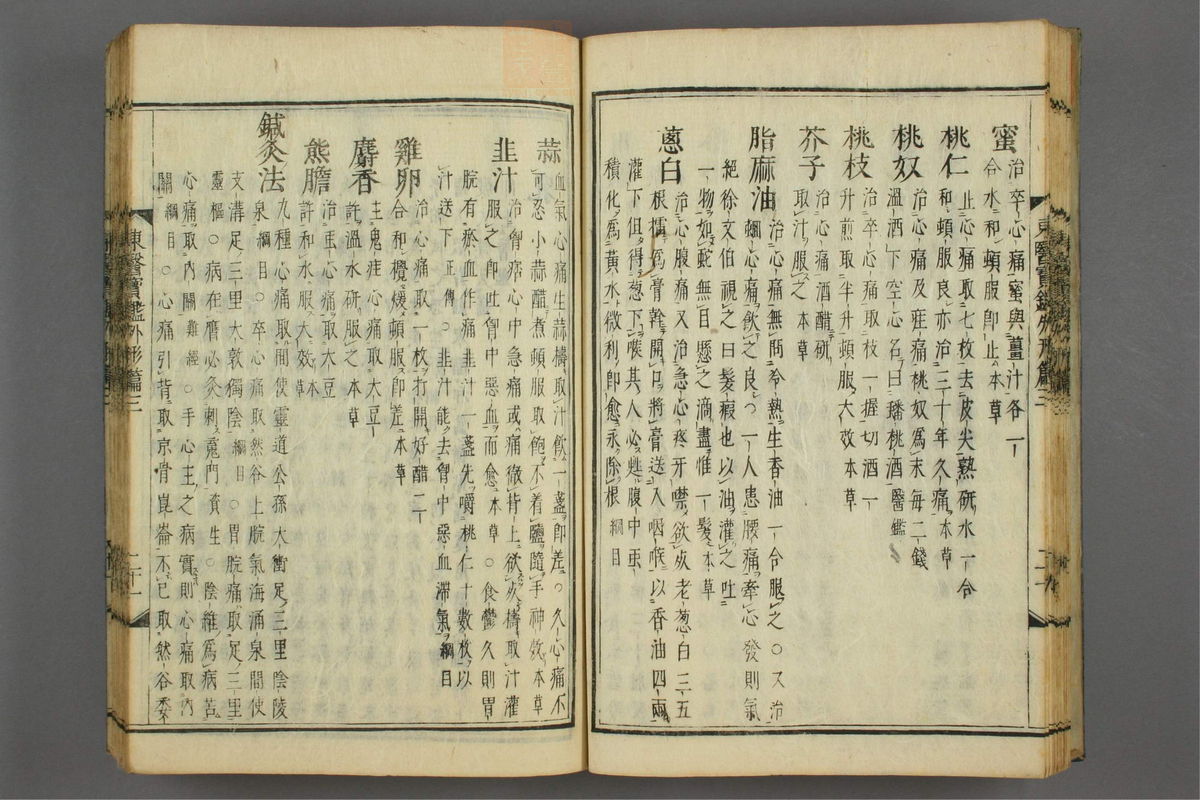 蜜
治卒心痛蜜與薑汁各一
合水和頓服卽止本草
桃仁
止心痛取七枚去皮尖熟硏水一合
和頓服良亦治三十年久痛本草
桃奴
治心痛及疰痛桃奴爲末每二錢
溫酒下空心名曰蟠桃酒醫鑑
桃枝
治卒心痛取枝一握切酒一
升煎取半升頓服大效本草
芥子
治心痛酒醋硏
取汁服之本草
脂麻油
治心痛無問冷熱生香油一合服之○又治
蛔心痛飮之良○一人患腰痛牽心發則氣
絕徐文伯視之曰髮瘕也以油灌之吐
一物如蛇無目懸之滴盡惟一髮本草
蔥白
治心腹痛又治急心疼牙噤欲死老葱白三五
根擂爲膏斡開口將膏送入咽喉以香油四兩
灌下但得葱下喉其人必甦腹中虫
積化爲黃水微利卽愈永除根綱目
東醫寶鑑外形篇三
蒜
血氣心痛生蒜擣取汁飮一盞卽差○久心痛不
可忍小蒜醋煮頓服取飽不着鹽隨手神效本草
韭汁
治胷痞心中急痛或痛徹背上欲死擣取汁灌
服之卽吐胷中惡血而愈本草○食鬱久則胃
脘有瘀血作痛韭汁一盞先嚼桃仁十數枚以
汁送下正傳○韭汁能去胷中惡血滯氣綱目
雞卵
治心痛取一枚打開好醋二
合和攪煖頓服卽差本草
麝香
主鬼疰心痛取大豆
許溫水硏服之本草
熊膽
治蟲心痛取大豆
許和水服大效本草
鍼灸法
九種心痛取間使靈道公孫大衝足三里陰陵
泉綱目○卒心痛取然谷上脘氣海涌泉間使
支溝足三里大敦獨陰綱目○胃脘痛取足三里
靈樞○病在膺必灸刺䰟門資生○陰維爲病苦
心痛取內關難經○手心主之病實則心痛取內
關綱目○心痛引背取京骨崑崙不已取然谷委
東醫寶鑑外形篇三
二十一